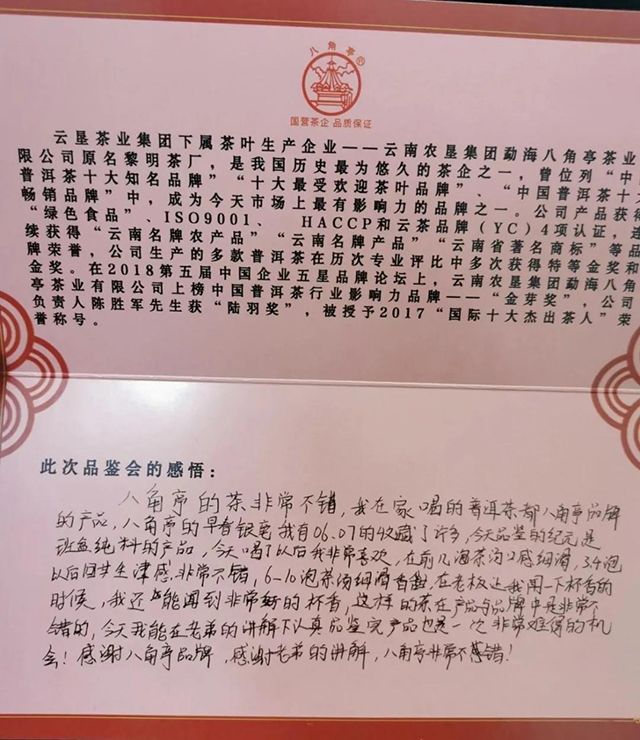 八角亭®
国营茶企 品质保证
云垦茶业集团下属茶叶生产企业——云南农垦集团勐海八角亭茶业
限公司原名黎明茶厂，是我国历史最为悠久的茶企之一，曾位列“中
普洱茶十大知名品牌”“十大最受欢迎茶叶品牌”、“中国普洱茶十大
畅销品牌”中，成为今天市场上最有影响力的品牌之一。公司产品获得
“绿色食品”、ISO9001、 HACCP和云茶品牌(YC)4项认证，连
续获得“云南名牌农产品”“云南名牌产品”“云南省著名商标”等品
牌荣誉，公司生产的多款普洱茶在历次专业评比中多次获得特等金奖和
金奖。在2018第五届中国企业五星品牌论坛上，云南农垦集团勐海八角
亭茶业有限公司上榜中国普洱茶行业影响力品牌——“金芽奖”，公司
负责人陈胜军先生获“陆羽奖”，被授予2017“国际十大杰出茶人”荣
誉称号。
此次品鉴会的感悟：
八角亭的茶非常不错，我在家喝的普洱茶都八角亭品牌
的产品，八角亭的早春银毫我有06.07的收藏了许多，今天品鉴的纪元是
班盆纯料的产品，今天喝了以后我非常喜欢，在前几泡茶汤口感细滑，3.4泡
以后回甘生津感非常不错，6-10泡茶汤细滑香甜，在老板让我闻一下杯香的
时候，我还能闻到非常好的杯香，这样的茶在产品与品牌中是非常不
错的，今天我能在老弟的讲解下认真品鉴完产品也是一次非常难得的机
会！感谢八角亭品牌，感谢老弟的讲解，八角亭非常不错！